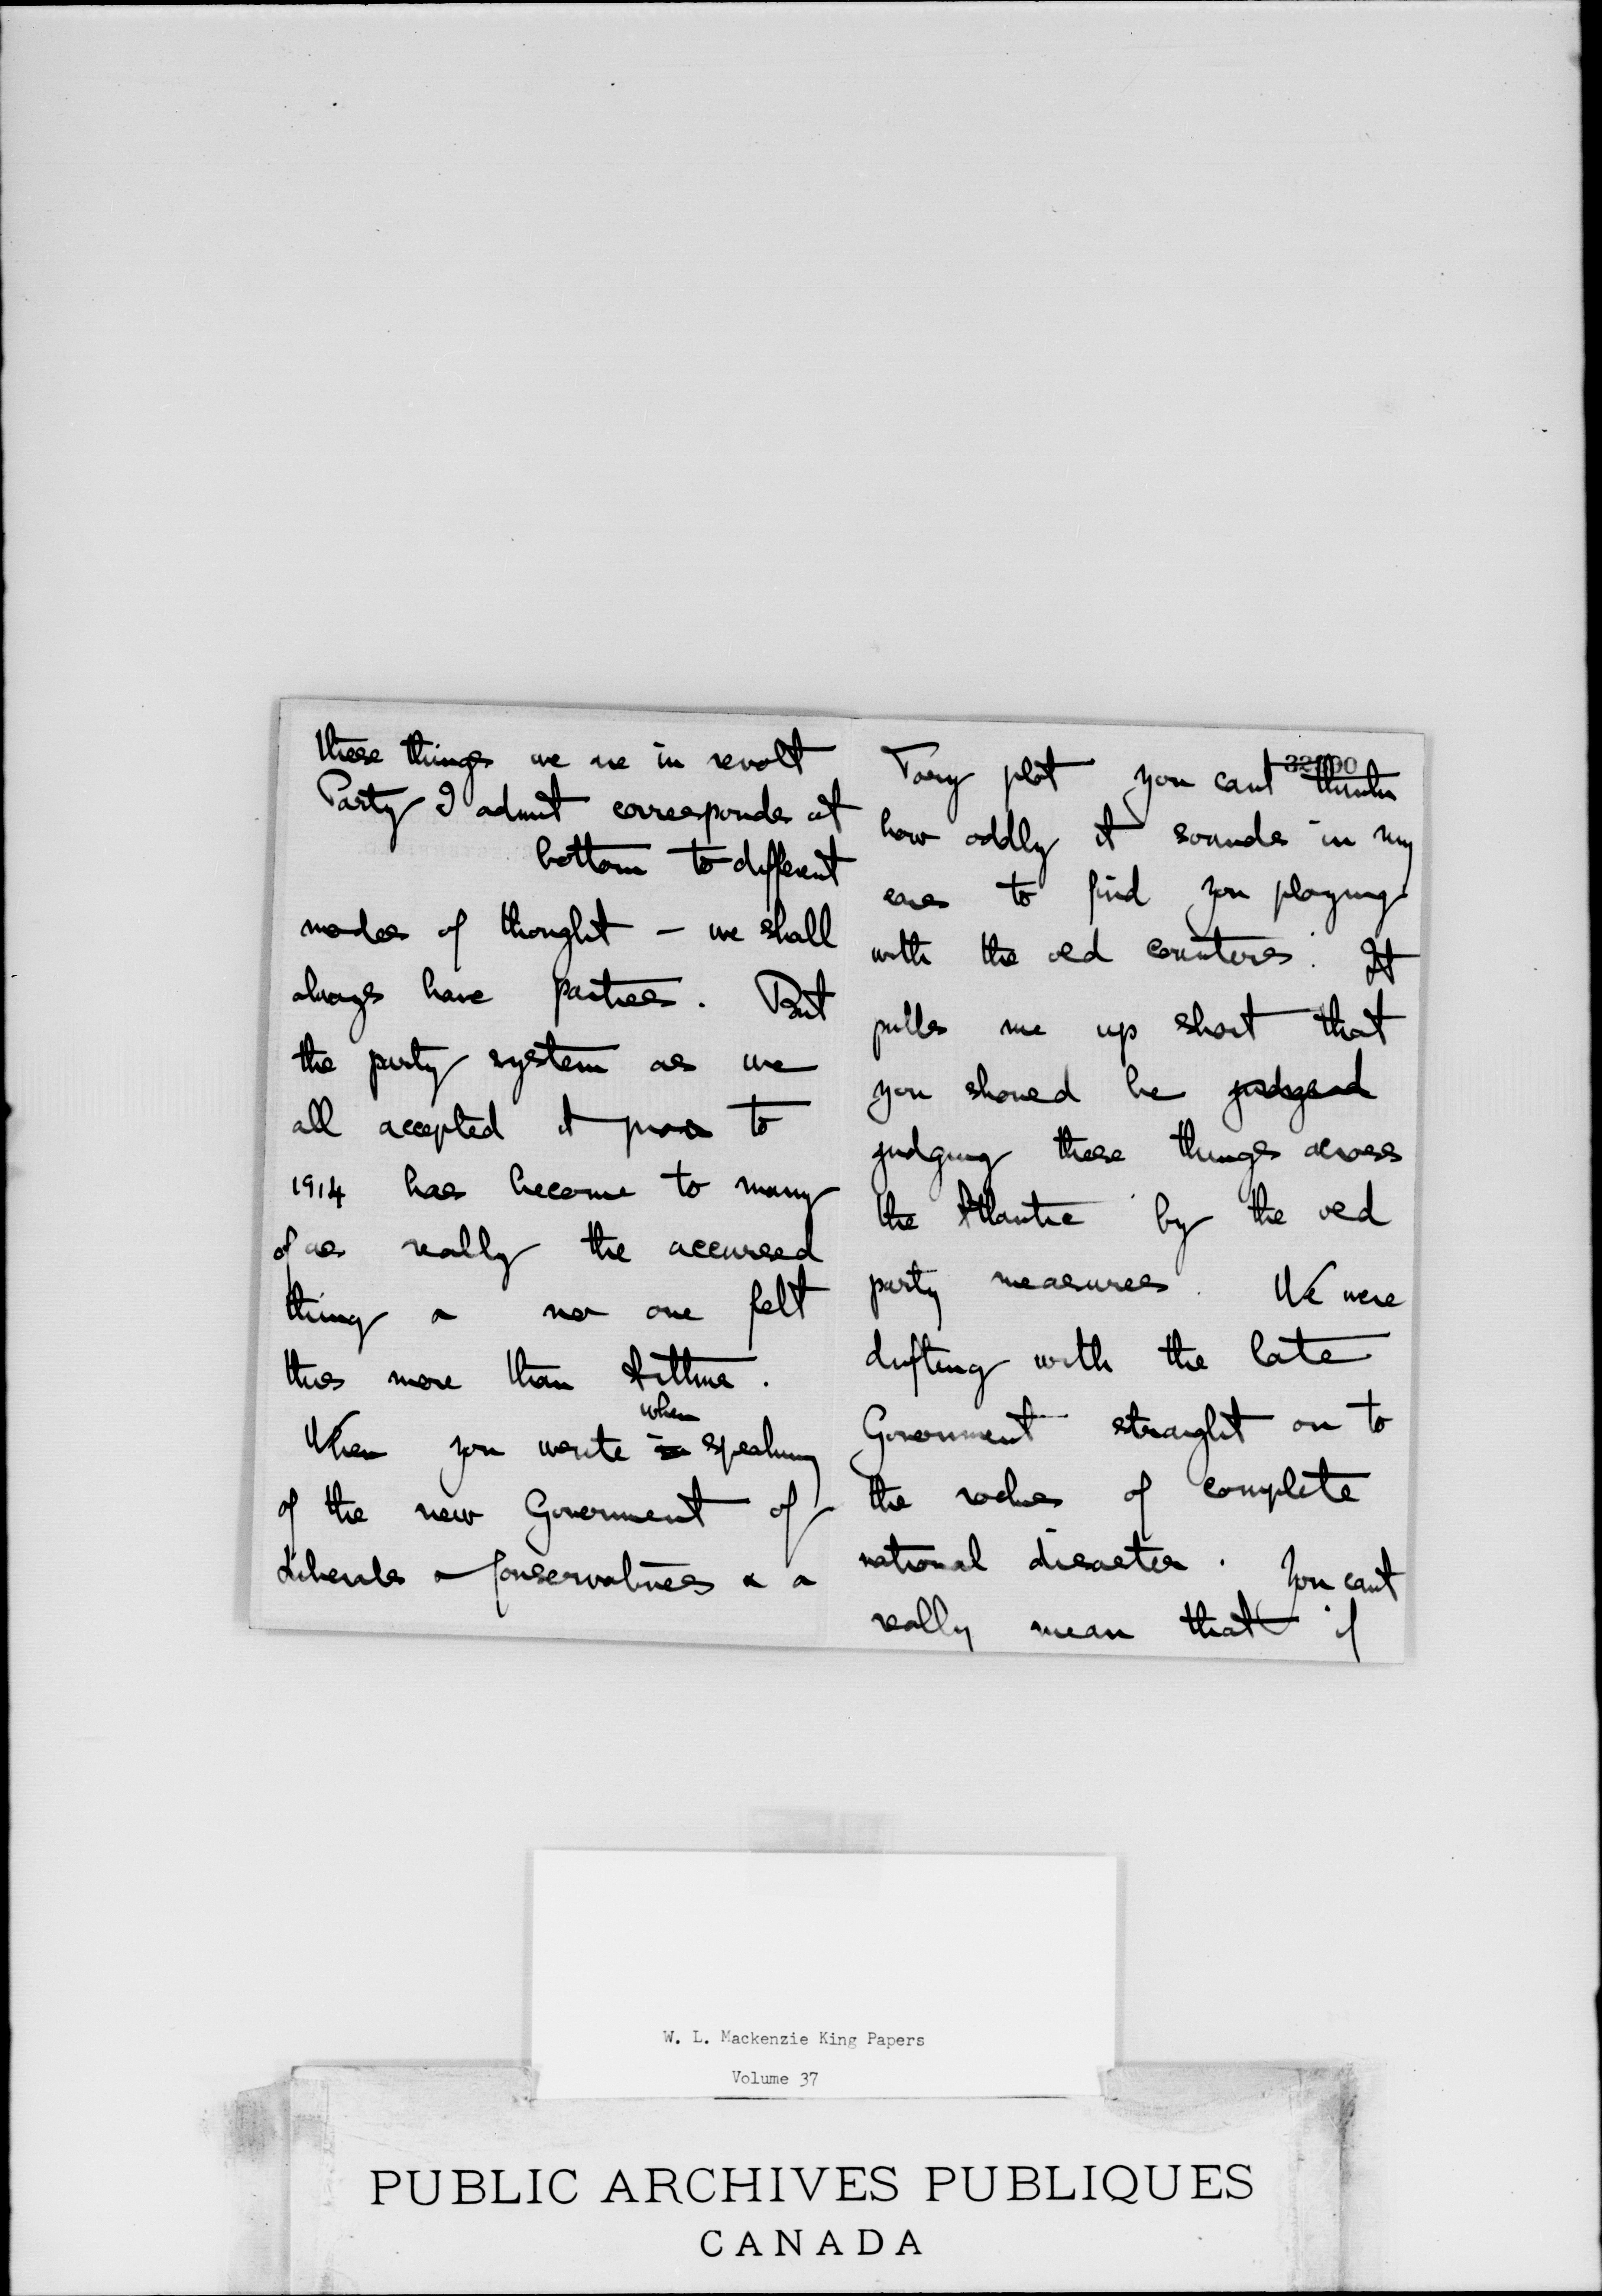 these things we are in revolt
Party I admit corresponds at
bottom to different
modes of thought – we shall
always have parties. But
the party system as we
all accepted it prior to
1914 has become to many
of us really the accursed
thing & no one felt
this more than Arthur.
When you write in when speaking
of the new Government of
Liberals & Conservatives & a
32100
Tory plot you cant think
how oddly it sounds in my
ears to find you playing
with the old counters. It
pulls me up short that
you should be judged
judging these things across
the Atlantic by the old
party measures. We were
drifting with the late
Government straight on to
the rocks of complete
national disaster. You cant
really mean that if
W. L. Mackenzie King Papers
Volume 37
PUBLIC ARCHIVES PUBLIQUES
CANADA